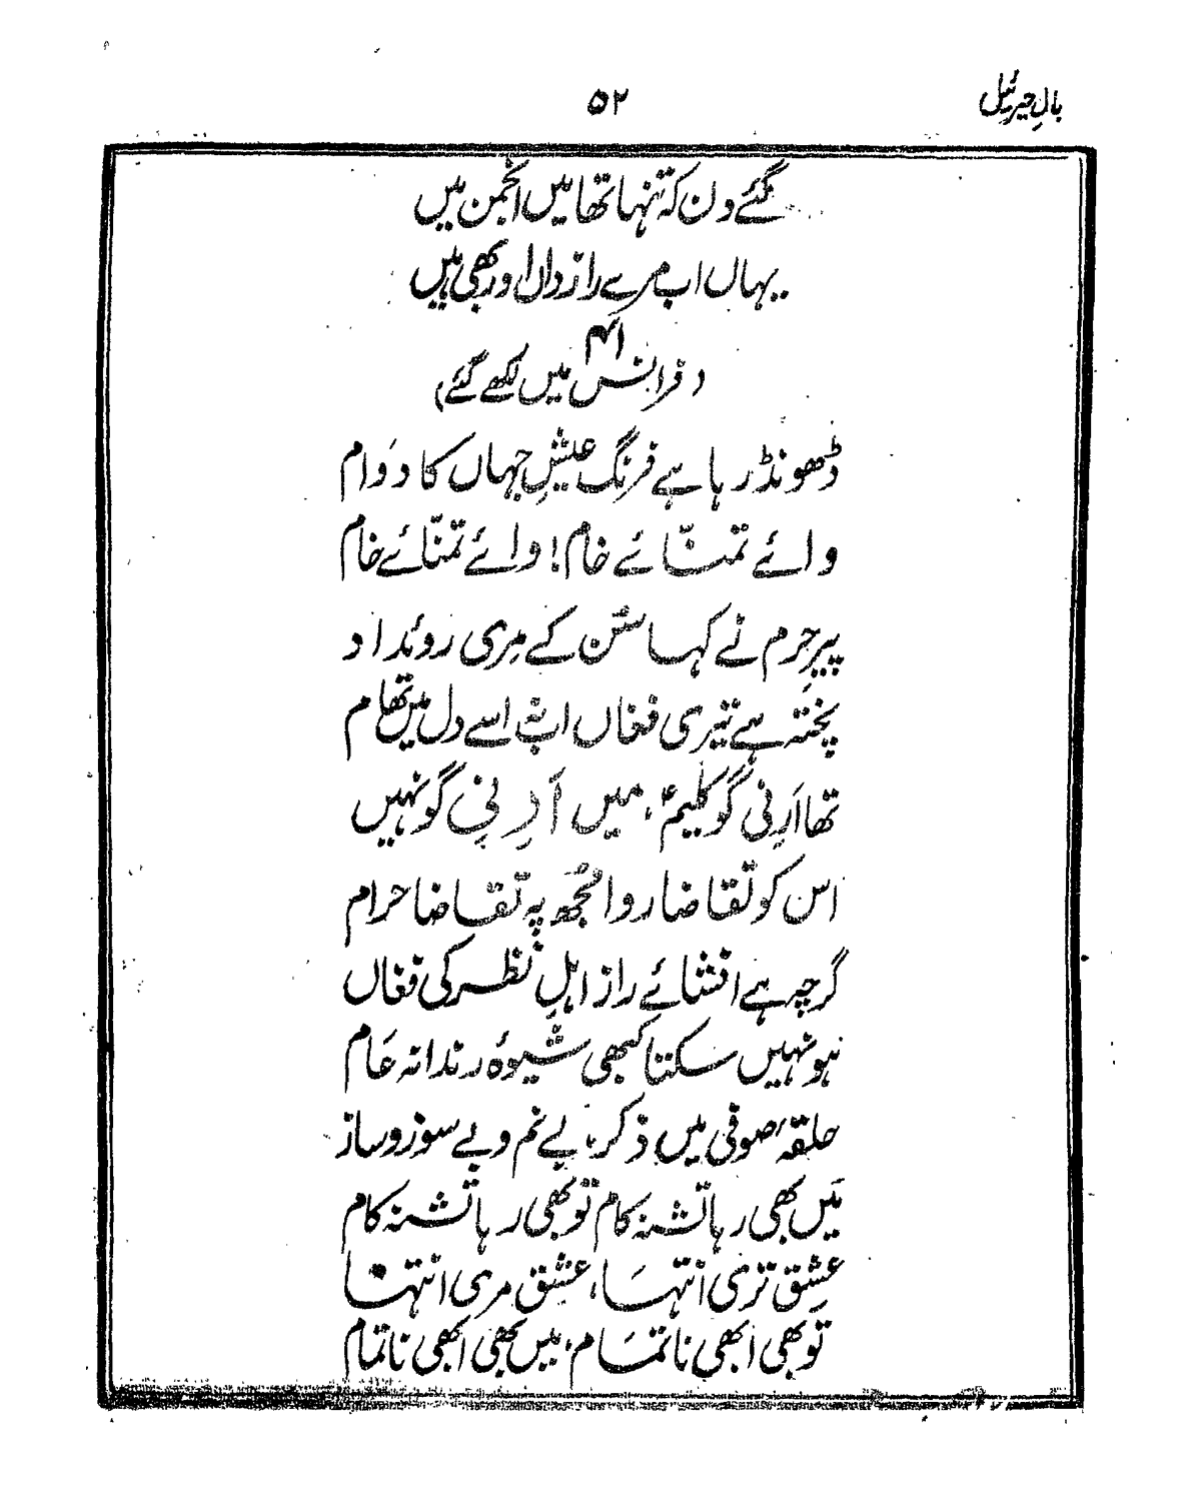 بالِ جبرئیل
۵۲
گئے دن کہ تنہا تھا میں انجمن میں
یہاں اب مرے رازداں اور بھی ہیں
۴۱
(فرانس میں لکھے گئے)
ڈھونڈ رہا ہے فرنگ عیشِ جہاں کا دَوام
وائے تمنّائے خام! وائے تمنّائے خام
پیرِ حرم نے کہا سُن کے مِری روئداد
پختہ ہے تیری فغاں اب نہ اسے دل میں تھام
تھا اَرِنی گو کلیمؑ، میں اَرِنی گو نہیں
اس کو تقاضا روا مُجھ پہ تقاضا حرام
گرچہ ہے افشائے راز اہلِ نظر کی فغاں
ہو نہیں سکتا کبھی شیوۂ رندانہ عَام
حلقۂ صوفی میں ذکر، بے نم و بے سوز و ساز
مَیں بھی رہا تشنہ کام تو بھی رہا تشنہ کام
عشق تری انتہَا، عشق مری انتہا
تو بھی ابھی ناتمَام، میں بھی ابھی ناتمام